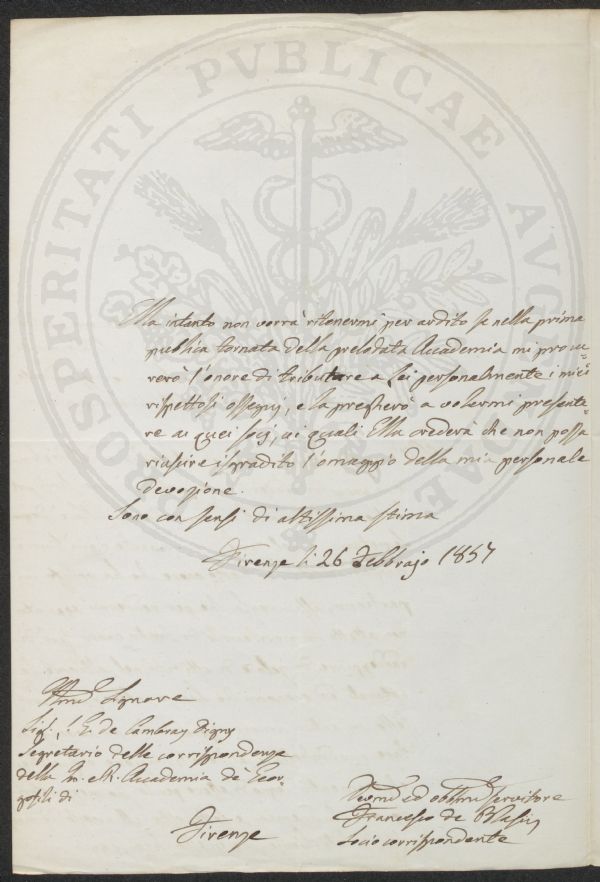 PROSPERITATI PVBLICAE AVGENDAE
Ella intanto non vorrà ritenermi per ardito se nella prima
publica tornata della prelodata Accademia mi procu=
rerò l'onore di tributare a Lei personalmente i miei
rispettosi ossequj, e la pregherò a volermi presenta=
re ai quei socj, ai quali Ella crederà che non possa
riuscire isgradito l'omaggio della mia personale
devozione.
Sono con sensi di altissima stima
Firenze li 26 Febbrajo 1857
Illmo Signore
Sigr. L. G. de Cambray Digny
Segretario delle corrispondenze
della I. e R. Accademia de' Geor-
gofili di
Firenze
Devmo ed obblmo servitore
Francesco de Blasiis
Socio corrispondente